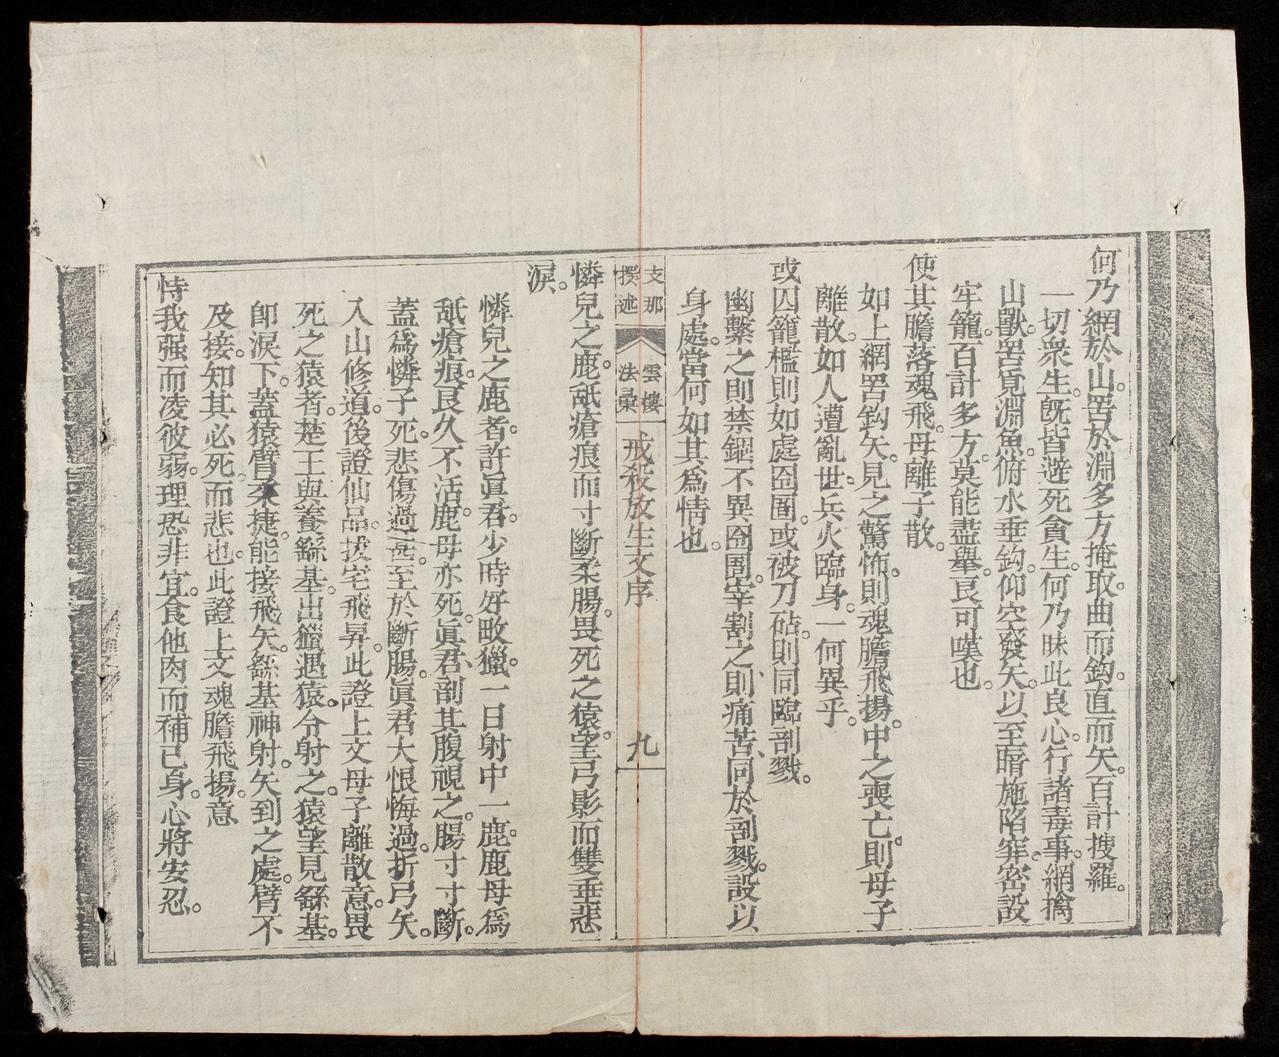 何乃網於山。罟於淵。多方掩取。曲而鈎。直而矢。百計搜羅。
一切衆生。旣皆避死貪生。何乃昧此良心。行諸毒事。網擒
山獸。罟覓淵魚。俯水垂鈎。仰空發矢。以至暗施陷穽。密設
牢籠。百計多方。莫能盡舉。良可嘆也。
使其膽落魂飛。母離子散。
如上網罟鈎矢。見之驚怖。則魂膽飛揚。中之喪亡。則母子
離散。如人遭亂世。兵火臨身。一何異乎。
或囚籠檻。則如處囹圄。或被刀砧。則同臨剖戮。
幽繫之則禁錮不異囹圄。宰割之則痛苦同於剖戮。設以
身處。當何如其爲情也。
支那
撰述
雲棲
法彙
戒殺放生文序
九
憐兒之鹿。舐瘡痕而寸斷柔腸。畏死之猿。望弓影而雙垂悲
淚。
憐兒之鹿者。許眞君少時好畋獵。一日射中一鹿。鹿母爲
舐瘡痕。良久不活。鹿母亦死。眞君剖其腹視之。腸寸寸斷。
蓋爲憐子死。悲傷過甚。至於斷腸。眞君大恨悔過。折弓矢。
入山修道。後證仙品。拔宅飛昇。此證上文母子離散意。畏
死之猿者。楚王與養繇基。出獵遇猿。令射之。猿望見繇基。
卽淚下。蓋猿臂柔捷。能接飛矢。繇基神射。矢到之處。臂不
及接。知其必死而悲也。此證上文魂膽飛揚意。
恃我强而凌彼弱。理恐非宜。食他肉而補己身。心將安忍。